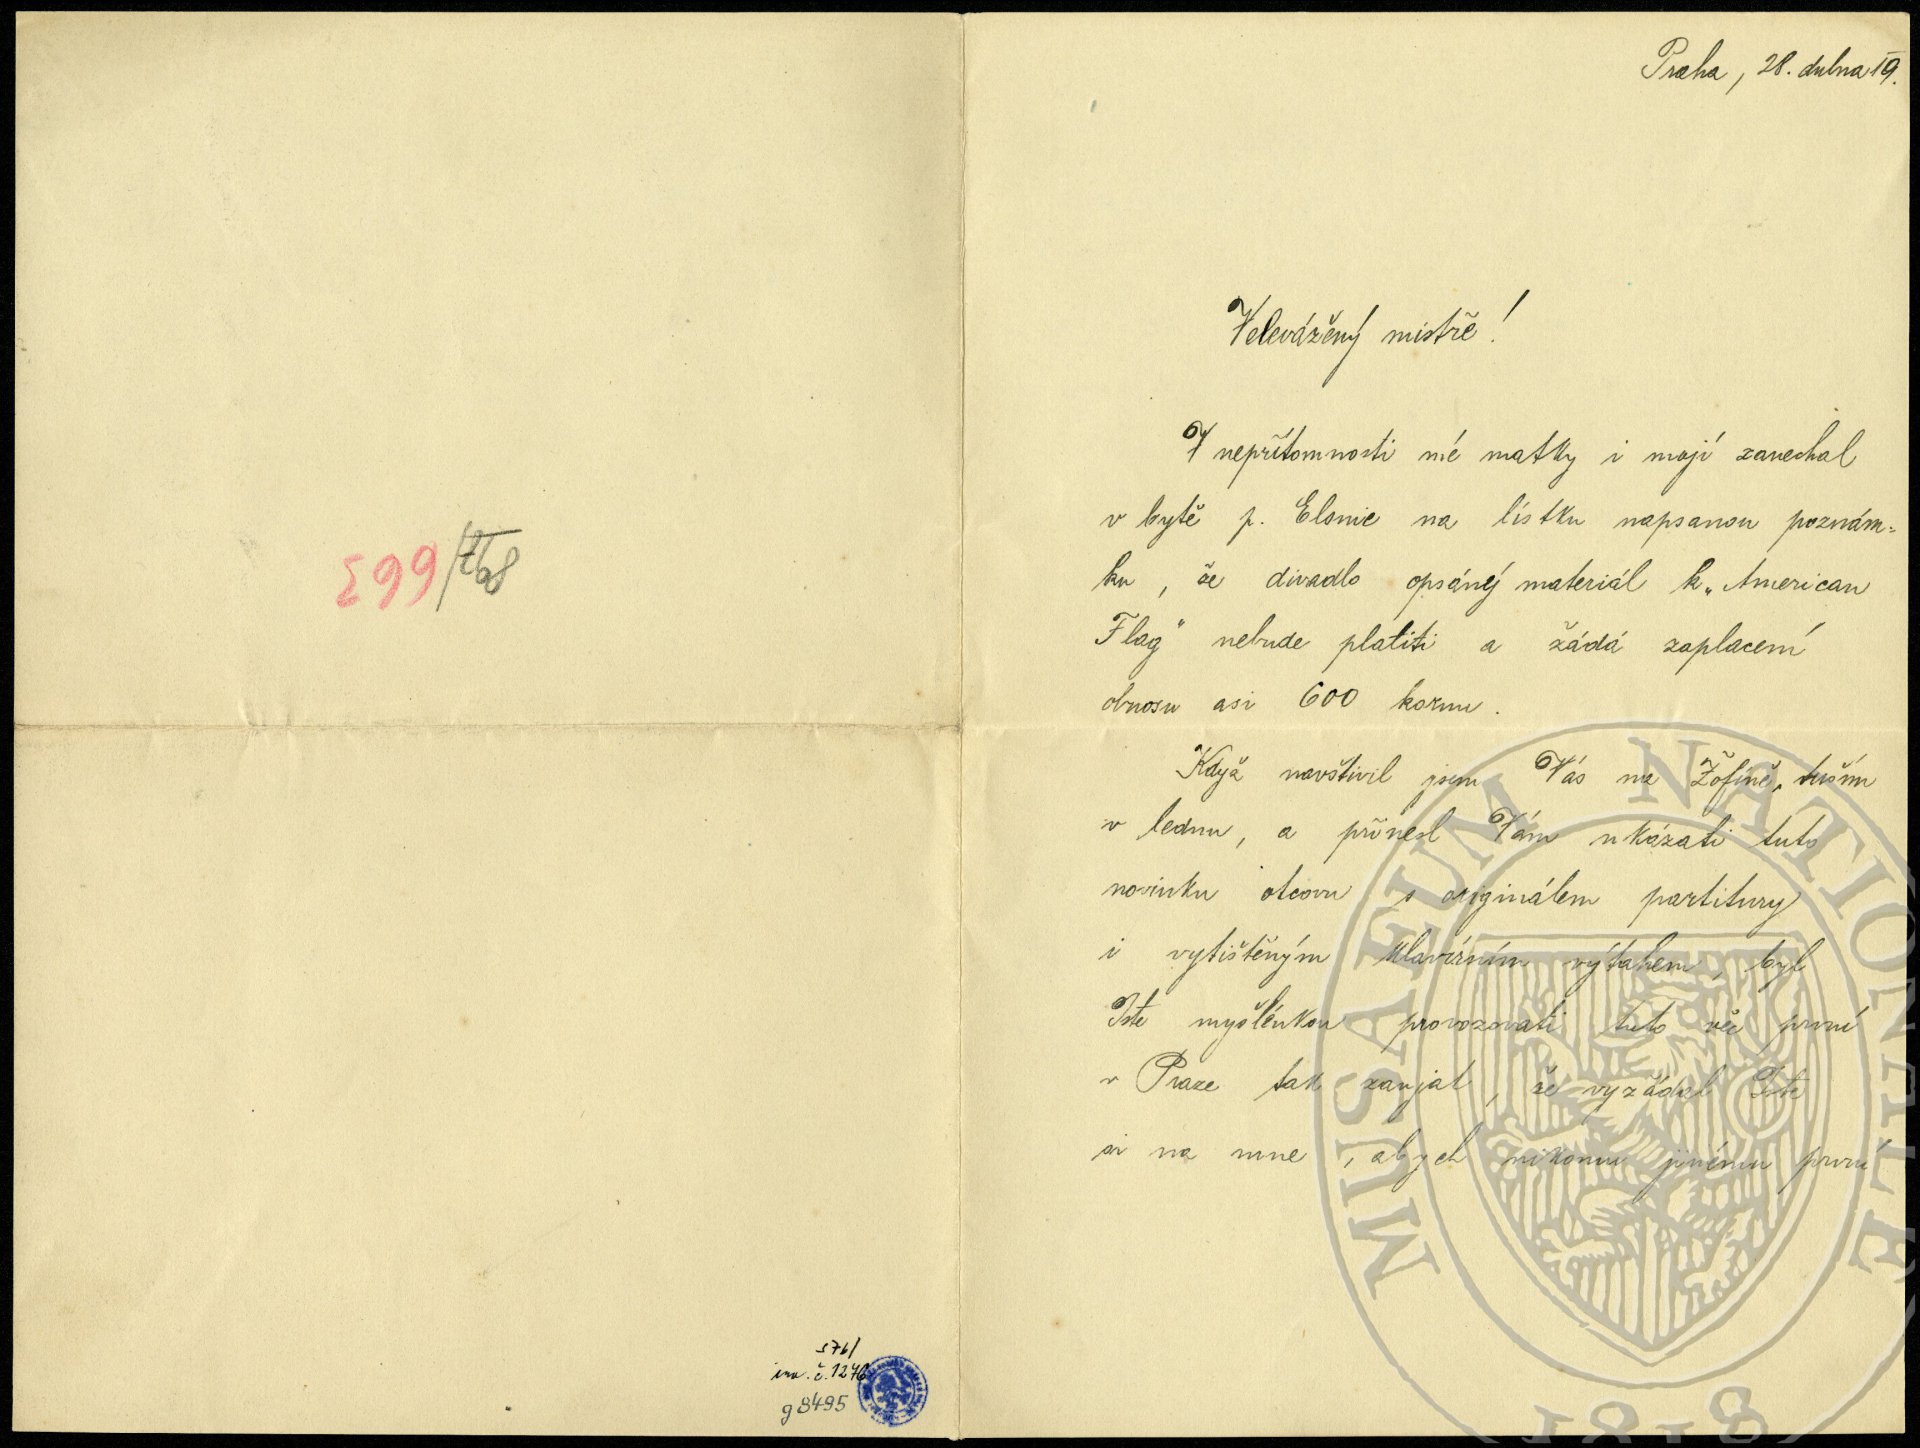 Praha, 28. dubna 19.
Velevážený mistře!
V nepřítomnosti mé matky i mojí zanechal
v bytě p. Elsnic na lístku napsanou poznám-
ku, že divadlo opsáný materiál k „American
Flag“ nebude platiti a žádá zaplacení
obnosu asi 600 korun.
Když navštívil jsem Vás na Žofíně, tuším
v lednu, a přinesl Vám ukázati tuto
novinku otcovu s originálem partitury
i vytištěným klavírním výtahem, byl
Jste myšlénkou provozovati tuto věc první
v Praze tak zaujat, že vyžádal Jste
si na mne, abych nikomu jinému první
599/
576/
inv. č. 1276
g 8495
MUSAEUM NATIONALE
1818